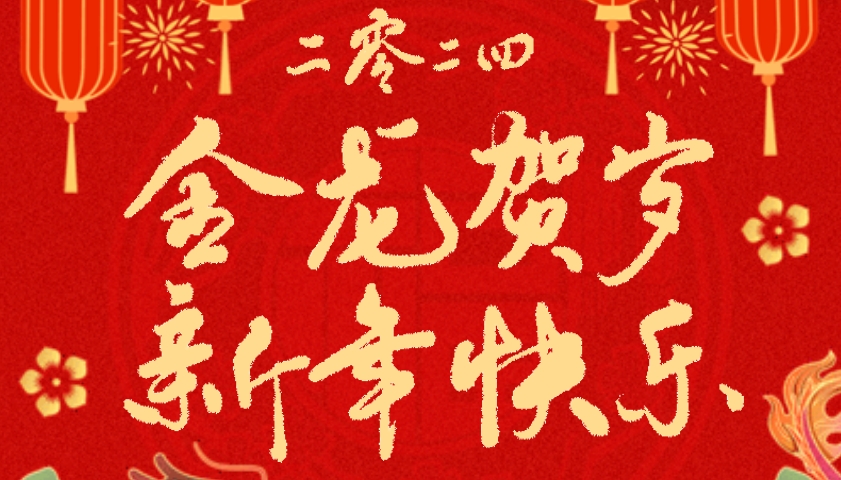 二零二四
金龙贺岁
新年快乐